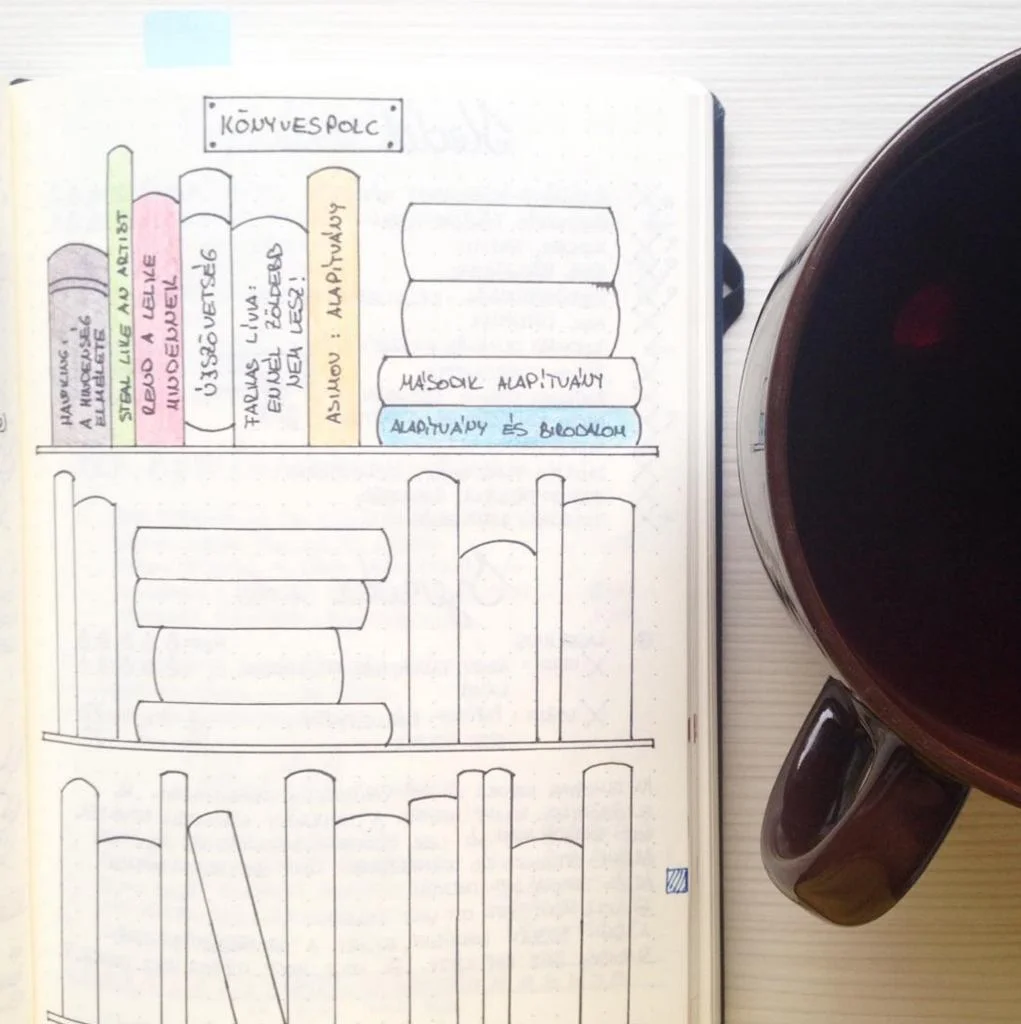 KÖNYVESPOLC
HAWKING:
A MINDENSÉG
ELMÉLETE
STEAL LIKE AN ARTIST
REND A LELKE
MINDENNEK
ÚJSZÖVETSÉG
FARKAS LÍVIA:
ENNÉL ZÖLDEBB
NEM LESZ!
ASIMOV: ALAPÍTVÁNY
MÁSODIK ALAPÍTVÁNY
ALAPÍTVÁNY ÉS BIRODALOM